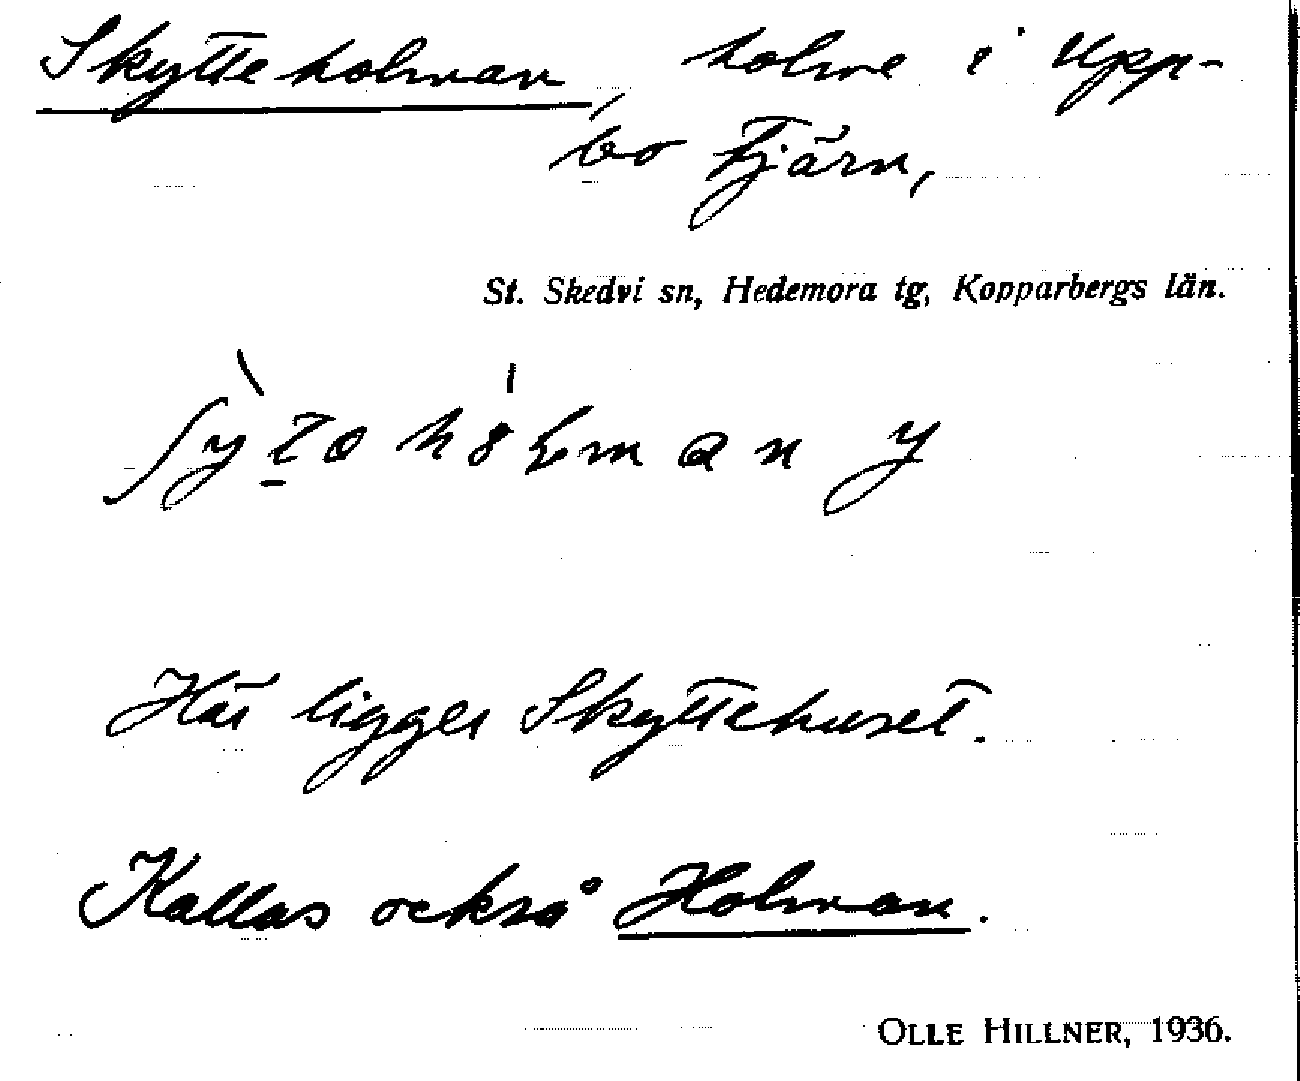 Skytteholman, holme i Upp-
bo tjärn,
St. Skedvi sn, Hedemora tg, Kopparbergs län.
Här ligger Skyttehuset.
Kallas också Holman.
OLLE HILLNER, 1936.